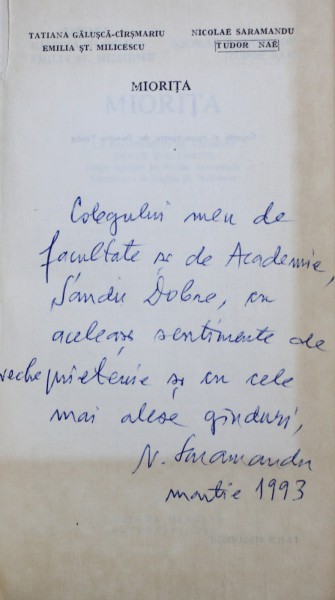 TATIANA GĂLUȘCĂ-CÎRȘMARIU NICOLAE SARAMANDU
EMILIA ȘT. MILICESCU TUDOR NAE
MIORIȚA
Colegului meu de
facultate și de Academie,
Sandu Dobre, cu
aceleași sentimente de
veche prietenie și cu cele
mai alese gînduri,
N. Saramandu
martie 1993